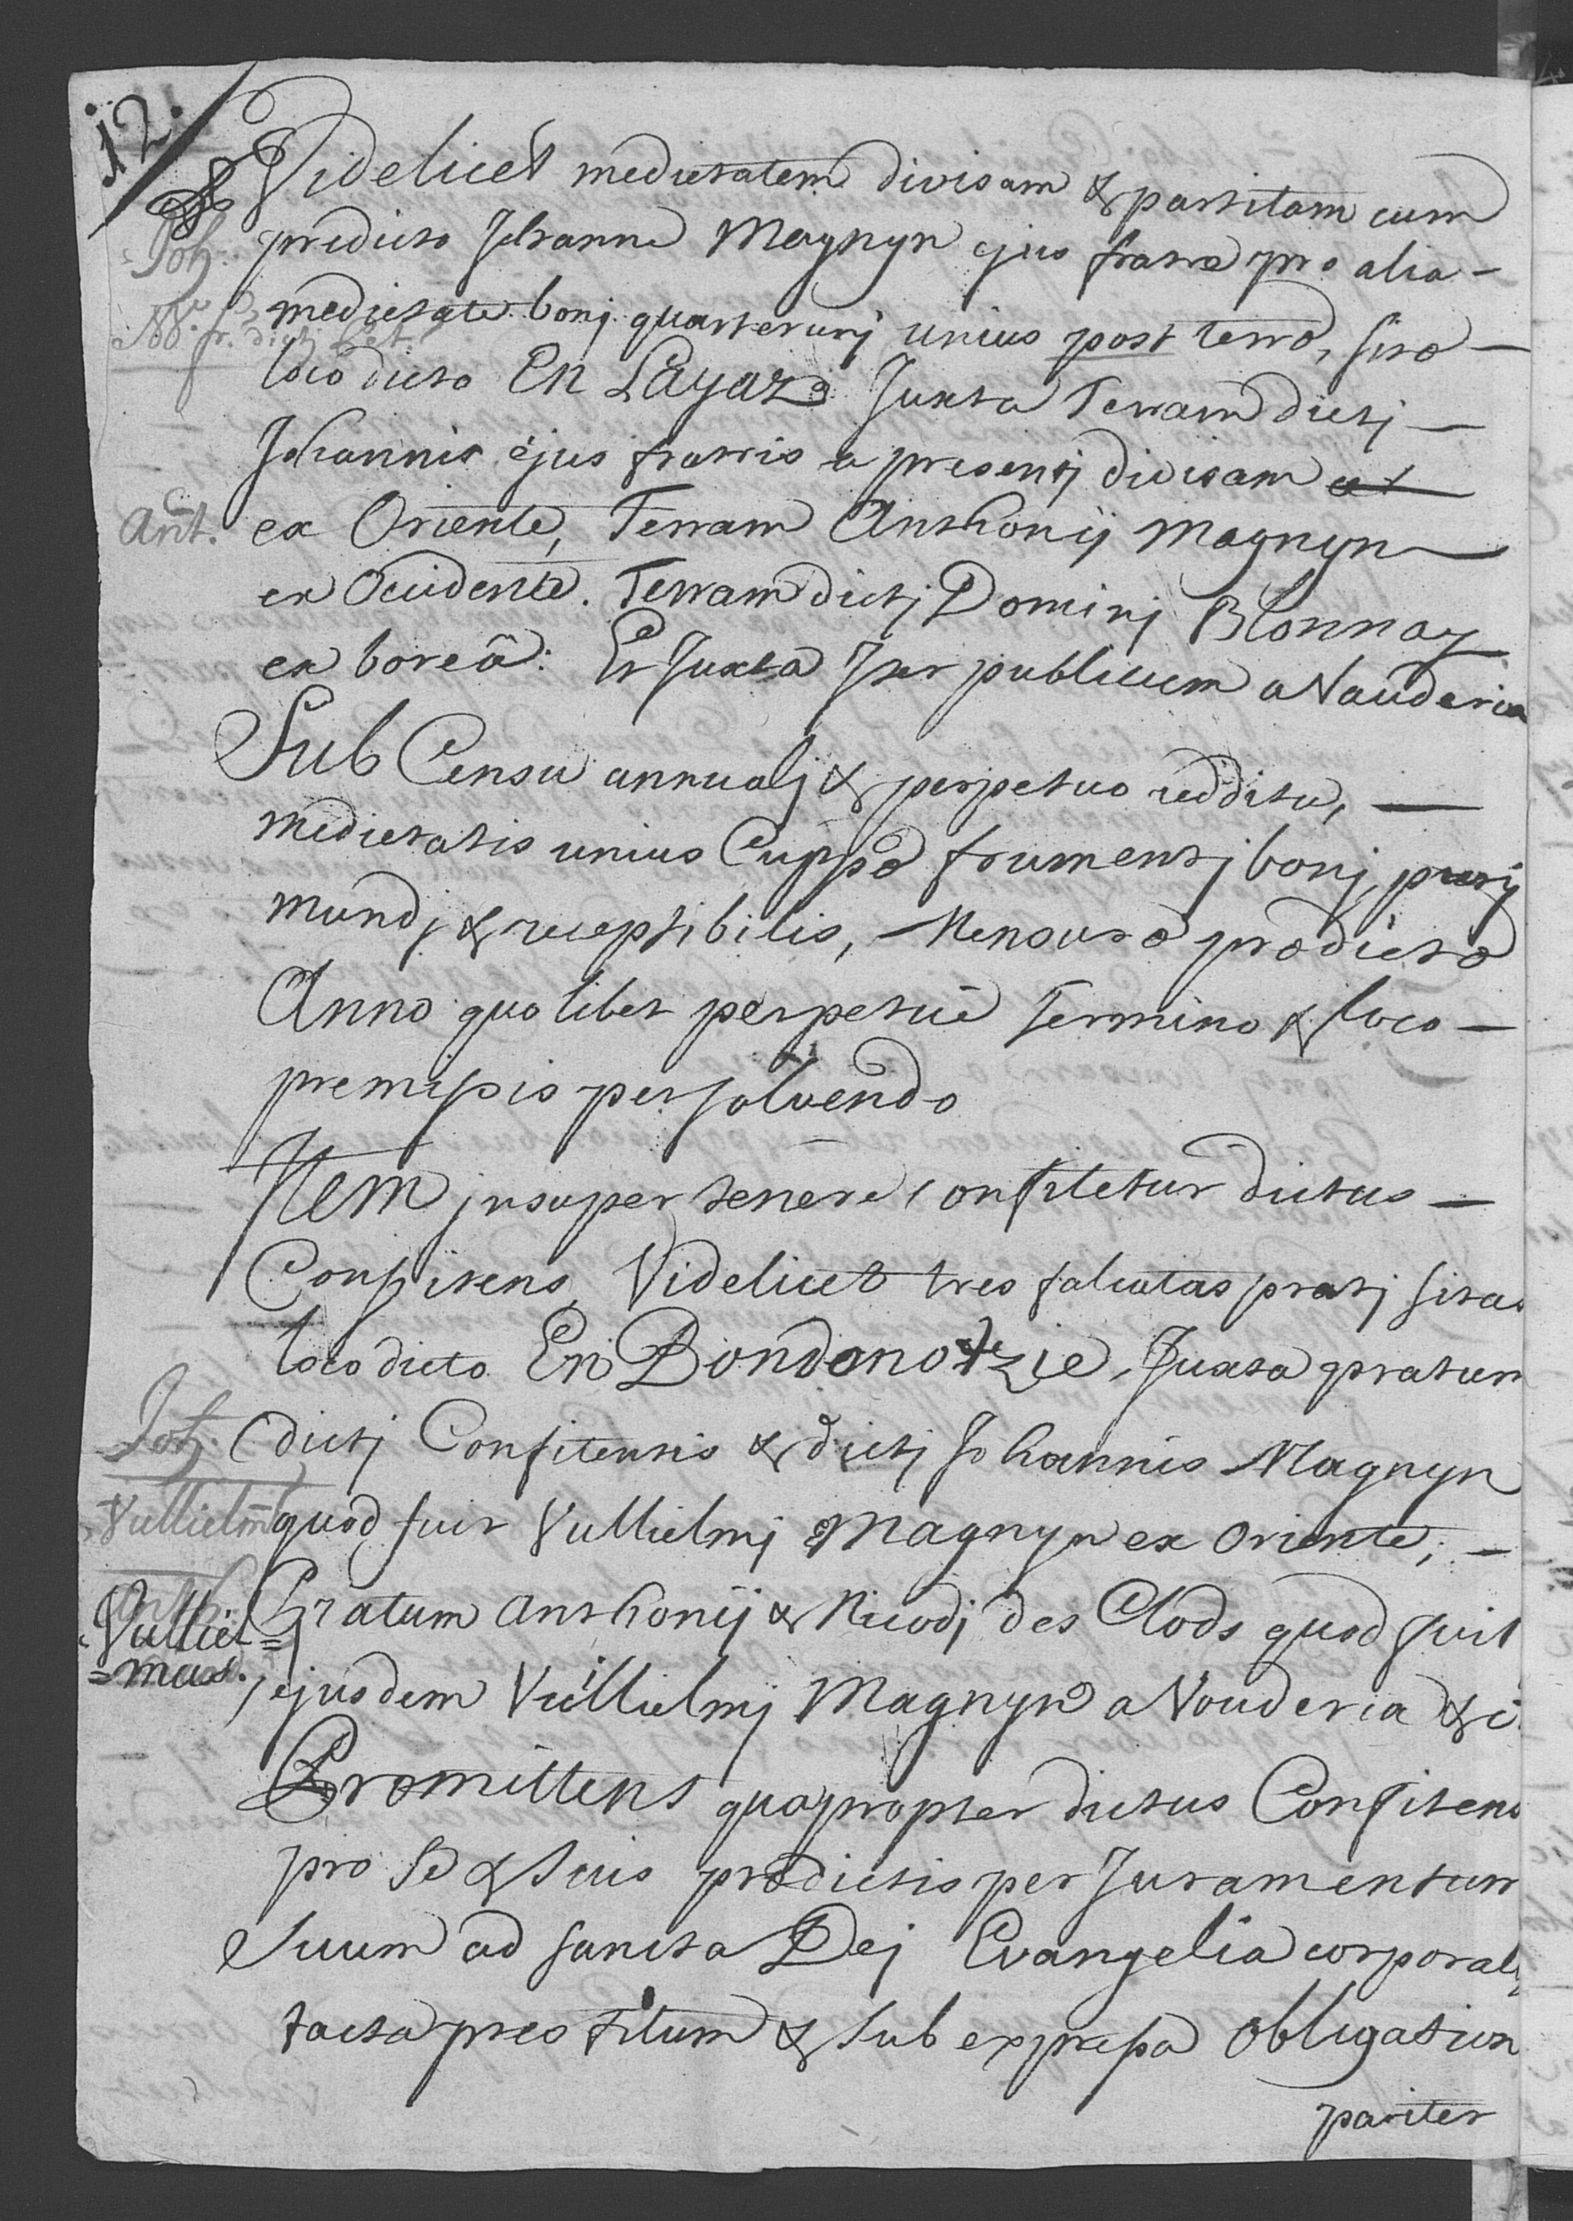 12.
Videlicet medietatem divisam & partitam cum
Joh. predicto Johanne Magnyn ejus fratre pro alia -
medietate bonj quarterunj unius post terræ, sitæ -
fr. dictj Pet.
loco dicto En Layaz Juxta Terram dictj -
Johannis ejus fratris a presentj divisam et
Ant. ex Oriente, Terram Anthonij Magnyn
ex Occidente. Terram dictj Dominj Blonnay
ex boreâ: Et Juxta Iter publicum a Vauderia
Sub Censu annualj & perpetuo redditu, -
medietatis unius Cuppæ frumentj bonj, purj
mundj & receptibilis, Mensuræ prædictæ
Anno quolibet perpetuè termino & loco -
premissis persolvendo
Item jnsuper tenere Confitetur dictus -
Confitens, Videlicet tres falcatas pratj sitas
loco dicto En Bondonotzie, Juxta pratum
Joh. dictj Confitentis & dictj Johannis Magnyn
Vullielm quod fuit Vullielmj Magnyn ex Oriente, -
Vulliel= Pratum Anthonij & Nicodj des Clods quod fuit
=mus. ejusdem Vullielmj Magnyn a Vouderia &c.
Promittens quapropter dictus Confitens
pro se & suis prædictis per Juramentum
Suum ad sancta Dej Evangelia corporal
tacta prestitum & sub expressa obligation
pariter